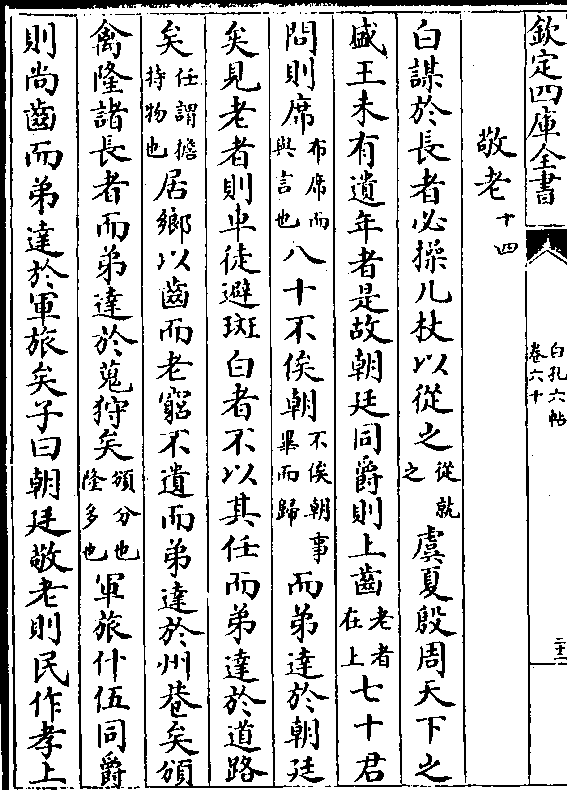 欽定四庫全書
白孔六帖
卷六十
三十二
敬老十四
白謀於長者必操几杖以從之從就之虞夏殷周天下之
盛王未有遺年者是故朝廷同爵則上齒老者在上七十君
問則席布席而與言也八十不俟朝不俟朝事畢而歸而弟達於朝廷
矣見老者則車徒避斑白者不以其任而弟達於道路
矣任謂擔持物也居鄉以齒而老窮不遺而弟達於州巷矣頒
禽隆諸長者而弟達於蒐狩矣頒分也隆多也軍旅什伍同爵
則尚齒而弟達於軍旅矣子曰朝廷敬老則民作孝上